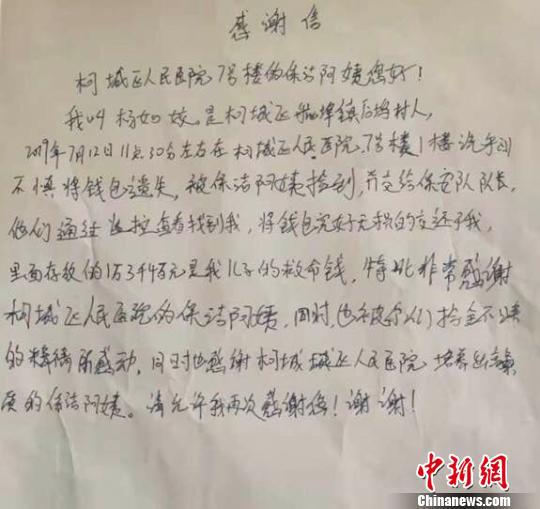 感谢信
柯城区人民医院7号楼的保洁阿姨您好！
我叫杨如姣，是柯城区航埠镇后坞村人，
2019年7月12日11点30分左右在柯城区人民医院7号楼1楼洗手间
不慎将钱包遗失，被保洁阿姨捡到，并交给保安队队长，
他们通过监控查看找到我，将钱包完好无损的交还于我，
里面存放的1万3千4百元是我儿子的救命钱，特此非常感谢
柯城区人民医院的保洁阿姨，同时，也被你们拾金不昧
的精神所感动，同时也感谢柯城城区人民医院培养出高素
质的保洁阿姨。请允许我再次感谢您！谢谢！
中新网
Chinanews.com